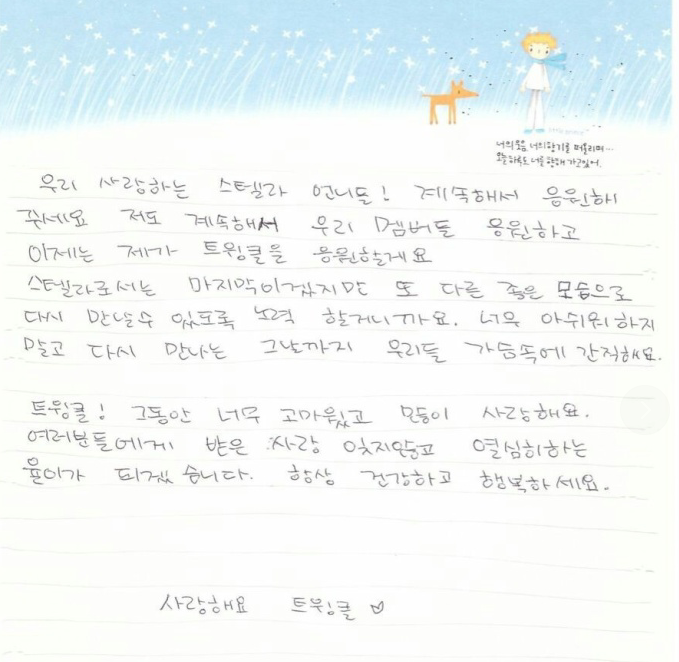 너의 모습 너의 향기를 떠올리며...
오늘 하루도 너를 향해 가고있어.
우리 사랑하는 스텔라 언니들! 계속해서 응원해
주세요 저도 계속해서 우리 멤버들 응원하고
이제는 제가 트윙클을 응원할게요
스텔라로서는 마지막이겠지만 또 다른 좋은 모습으로
다시 만날수 있도록 노력 할거니까요. 너무 아쉬워하지
말고 다시 만나는 그날까지 우리들 가슴속에 간직해요.
트윙클! 그동안 너무 고마웠고 많이 사랑해요.
여러분들에게 받은 사랑 잊지않고 열심히하는
율이가 되겠습니다. 항상 건강하고 행복하세요.
사랑해요 트윙클 ♡